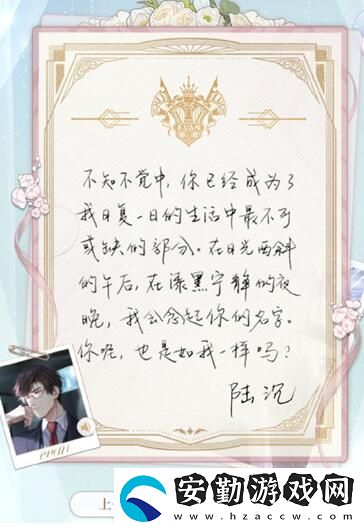 EVAN
不知不觉中，你已经成为了
我日复一日的生活中最不可
或缺的部分。在日光西斜
的午后，在漆黑宁静的夜
晚，我会念起你的名字。
你呢，也是如我一样吗？
陆沉
evan
上
安勤游戏网
www.hzaccw.com